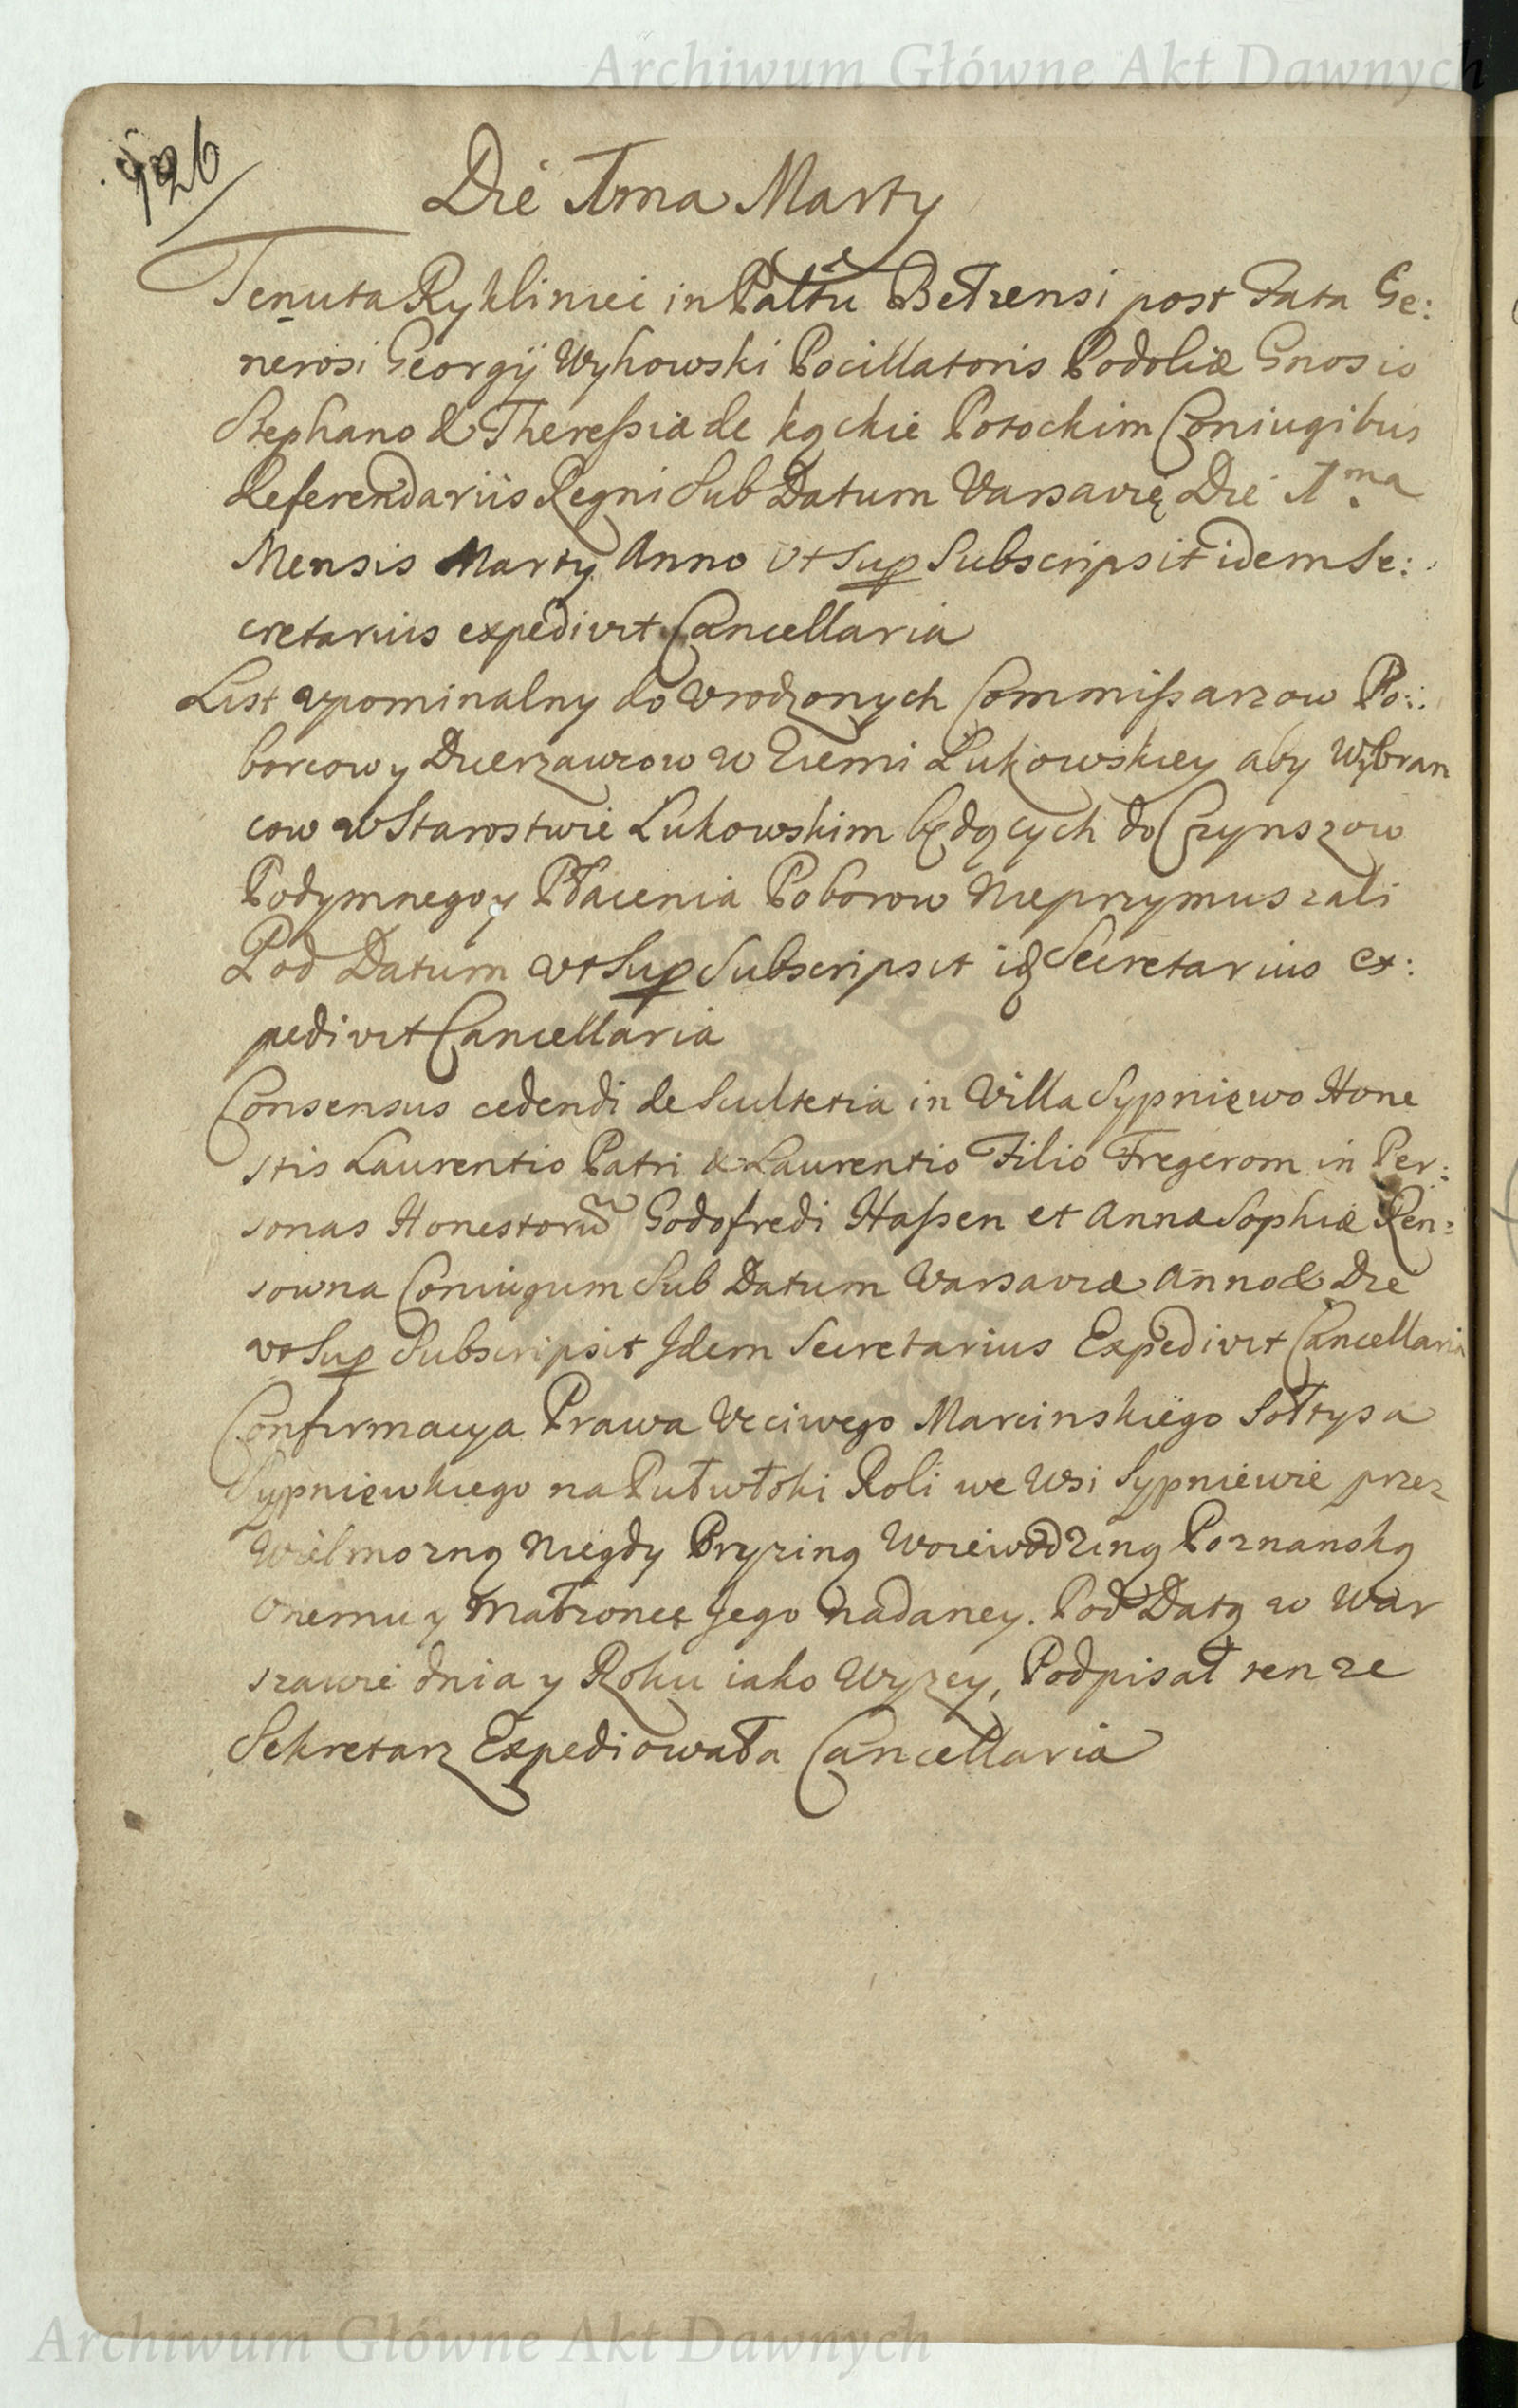 Archiwum Główne Akt Dawnych
926
Die 1ma Marty
Tenuta Rykliniei in Paltu Bełzensi post Fata Ge:
nerosi Georgÿ Wyhowski Pocillatoris Podoliæ Gnosio
Stephano & Theressiæ de kąckie Potockim Coniugibus
Referendariis Regni Sub Datum Varsavię Die 1ma
Mensis Marty Anno Vt Sup Subscripsit idem Se:
cretarius expedivit Cancellaria
List vpominalny do Vrodzonych Commissarzow Po:
borcow y Dzierzawcow w Ziemi Łukowskiey aby Wybran
cow w Starostwie Lukowskim będących do Czynszow
Podymnego y Płacenia Poborow Nieprzymuszali
Pod Datum vt Sup Subscripsit id Secretarius ex:
pedivit Cancellaria
Consensus cedendi de Scultetia in Villa Sypniewo Hone
stis Laurentio Patri & Laurentio Filio Fregerom in Per:
sonas Honestorũ Godofredi Hassen et Annæ Sophiæ Ren:
sowna Coniugum Sub Datum Varsaviæ Anno & Die
vt Sup Subscripsit Idem Secretarius Expedivit Cancellaria
Confirmacya Prawa Vcciwego Marcinskiego Sołtysa
Sypniewkiego na Puł włoki Roli we Wsi Sypniewie przez
Wielmozną Niegdy Bryziną Woiewodziną Poznanską
Onemu y Małzonce Jego nadaney. Pod Datą w War
szawie dnia y Roku iako Wyzey, Podpisał tenze
Sekretarz Expediowała Cancellaria
Archiwum Główne Akt Dawnych